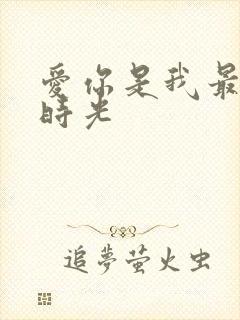 愛你是我最
時光
追夢萤火虫